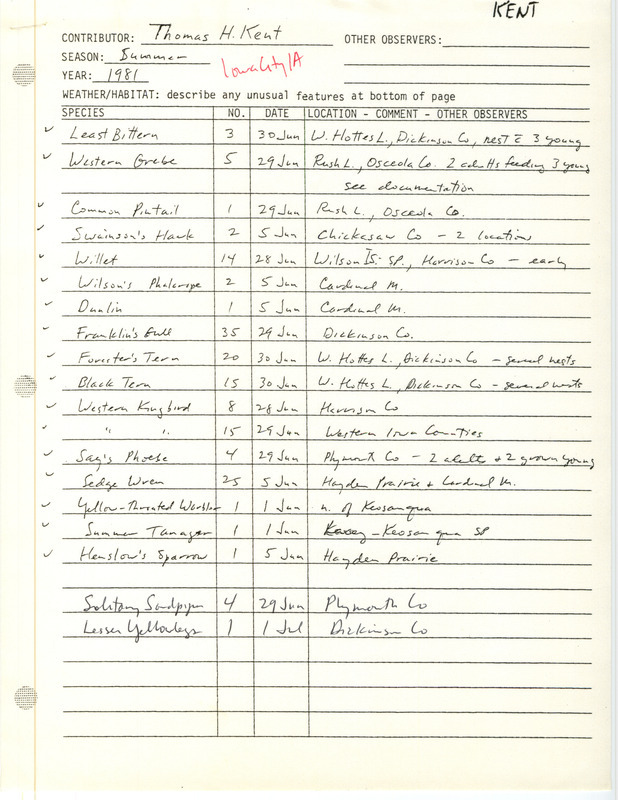 KENT
CONTRIBUTOR: Thomas H. Kent OTHER OBSERVERS:
SEASON: Summer
Iowa City IA
YEAR: 1981
WEATHER/HABITAT: describe any unusual features at bottom of page
SPECIES NO. DATE LOCATION - COMMENT - OTHER OBSERVERS
✓ Least Bittern 3 30 Jun W. Hottes L., Dickinson Co, nest c̄ 3 young
✓ Western Grebe 5 29 Jun Rush L., Osceola Co. 2 adults feeding 3 young
see documentation
✓ Common Pintail 1 29 Jun Rush L., Osceola Co.
✓ Swainson's Hawk 2 5 Jun Chickasaw Co - 2 location
✓ Willet 14 28 Jun Wilson Is. SP., Harrison Co - early
✓ Wilson's Phalarope 2 5 Jun Cardinal M.
✓ Dunlin 1 5 Jun Cardinal M.
✓ Franklin's Gull 35 29 Jun Dickinson Co.
✓ Forester's Tern 20 30 Jun W. Hottes L., Dickinson Co - several nests
✓ Black Tern 15 30 Jun W. Hottes L., Dickinson Co - several nests
✓ Western Kingbird 8 28 Jun Harrison Co
✓ " " 15 29 Jun Western Iowa Counties
✓ Say's Phoebe 4 29 Jun Plymouth Co - 2 adults + 2 grown young
✓ Sedge Wren 25 5 Jun Hayden Prairie + Cardinal M.
✓ Yellow-Throated Warbler 1 1 Jun n. of Keosauqua
✓ Summer Tanager 1 1 Jun Keosauqua SP
✓ Henslow's Sparrow 1 5 Jun Hayden Prairie
Solitary Sandpiper 4 29 Jun Plymouth Co
Lesser Yellowlegs 1 1 Jul Dickinson Co